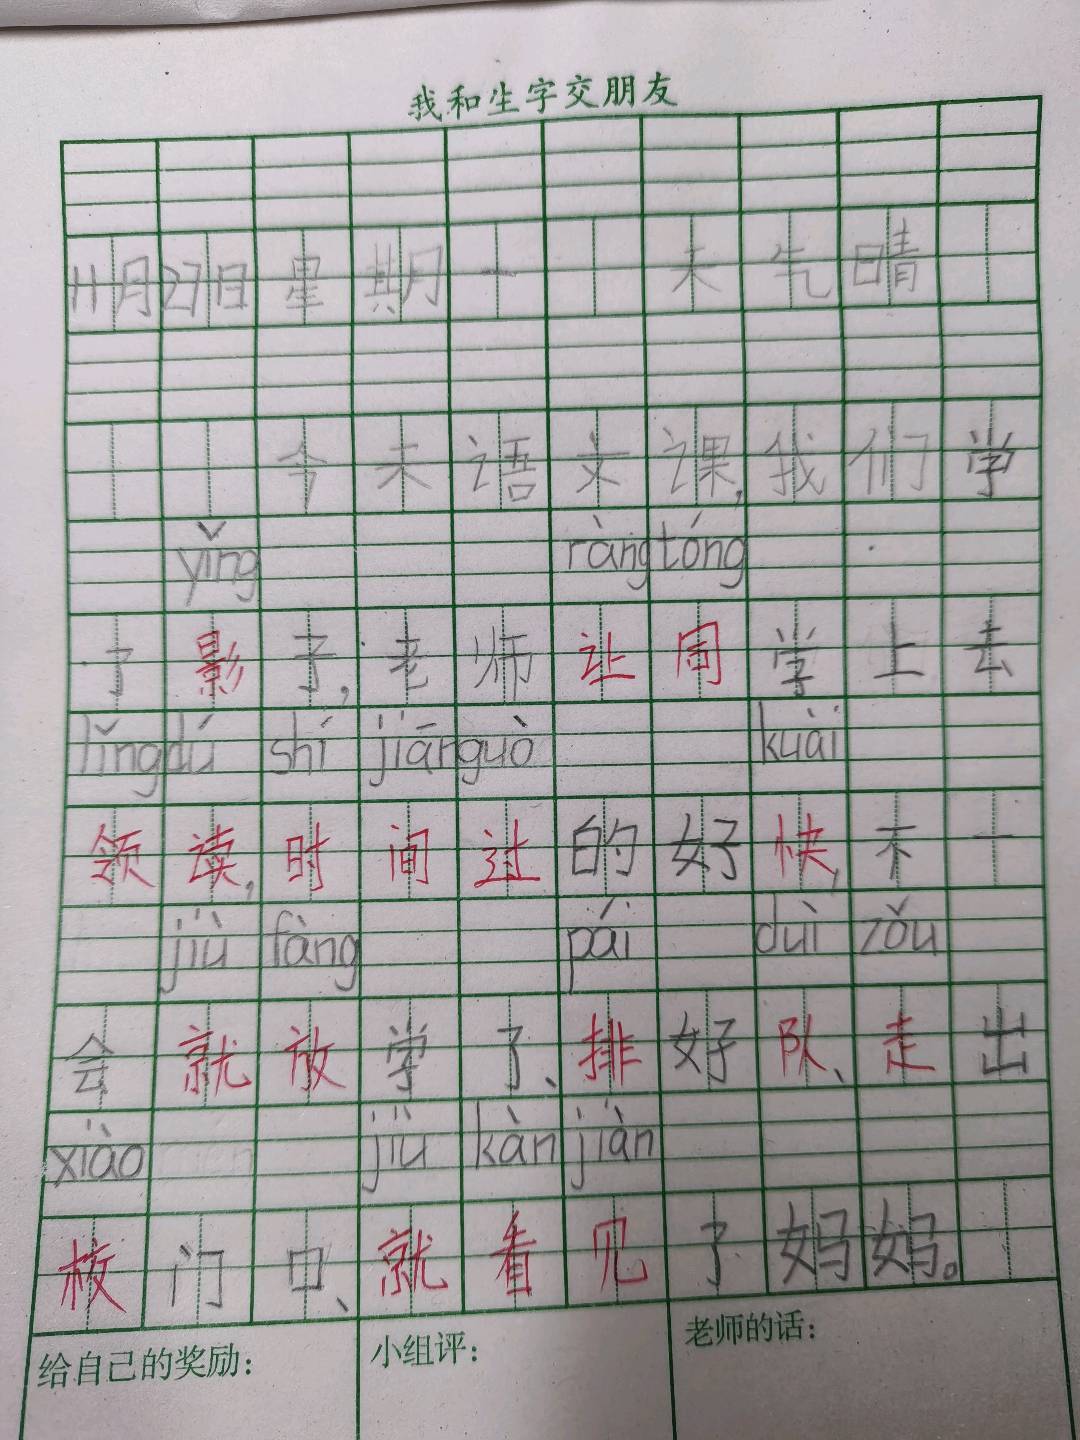 我和生字交朋友
11月27日星期一 天气晴
今天语文课,我们学
yǐng ràng tóng
了影子,老师让同学上去
lǐng dú shí jiān guò kuài
领读,时间过的好快,不一
jiù fàng pái duì zǒu
会就放学了、排好队、走出
xiào jiù kàn jiàn
校门口、就看见了妈妈。
给自己的奖励: 小组评: 老师的话: